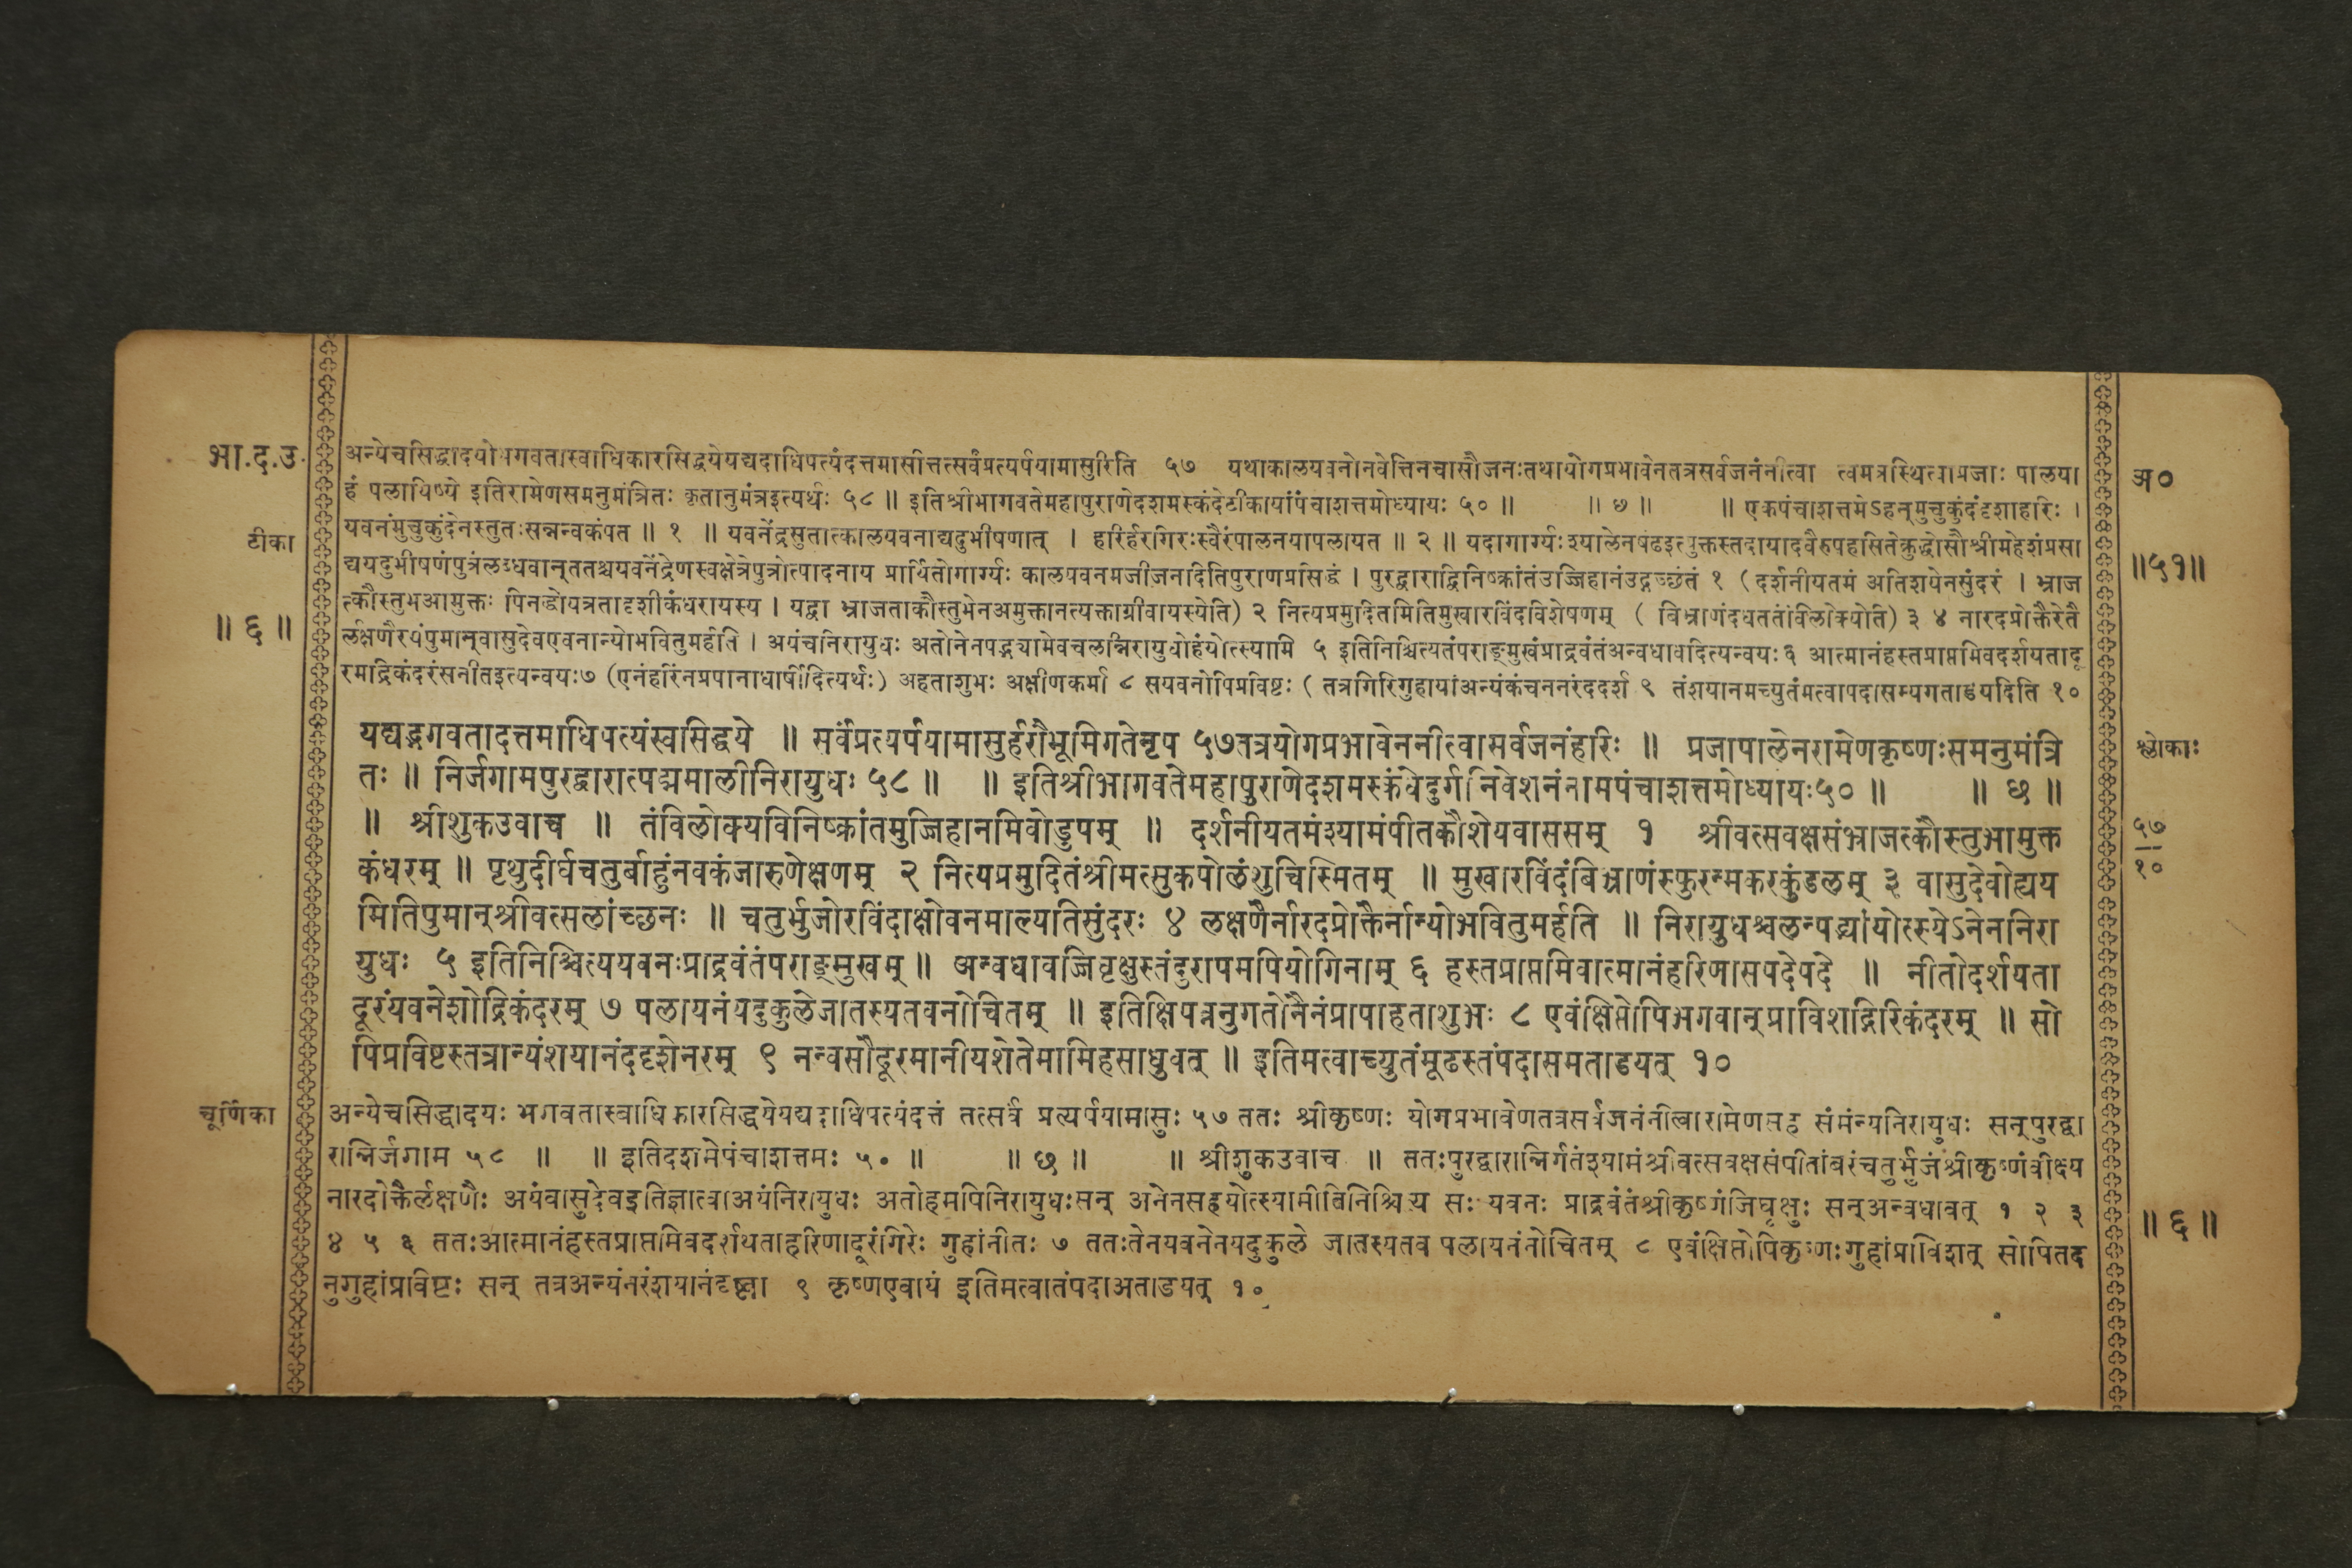 भा.द.उ.
अन्येचसिद्धादयोभगवतास्वाधिकारसिद्धयेयद्यदाधिपत्यंदत्तमासीत्तत्सर्वंप्रत्यर्पयामासुरिति ५७ यथाकालयवनोनवेत्तिनचासौजनःतथायोगप्रभावेनतत्रसर्वजनंनीत्वा त्वमत्रस्थित्वाप्रजाः पालया
अ०
हं पलायिष्ये इतिरामेणसमनुमंत्रितः कृतानुमंत्रइत्यर्थः ५८ ॥ इतिश्रीभागवतेमहापुराणेदशमस्कंदेटीकायांपंचाशत्तमोध्यायः ५० ॥ ॥ छ ॥ ॥ एकपंचाशत्तमेऽहन्मुचुकुंदंदृशाहरिः ।
टीका
यवनंमुचुकुंदेनस्तुतःसन्नन्वकंपत ॥ १ ॥ यवनेंद्रसुतात्कालयवनाद्यदुभीषणात् । हरिर्हरगिरःस्वैरंपालनयापलायत ॥ २ ॥ यदागार्ग्यःश्यालेनषंढइत्युक्तस्तदायादवैरुपहसितेक्रुद्धोसौश्रीमहेशंप्रसा
॥५१॥
द्ययदुभीषणंपुत्रंलब्धवान्ततश्चयवनेंद्रेणस्वक्षेत्रेपुत्रोत्पादनाय प्रार्थितोगार्ग्यः कालयवनमजीजनदितिपुराणप्रसिद्धं । पुरद्वाराद्विनिष्क्रांतंउज्जिहानंउद्गच्छंतं १ (दर्शनीयतमं अतिशयेनसुंदरं । भ्राज
त्कौस्तुभआमुक्तः पिनद्धोयत्रतादृशीकंधरायस्य । यद्वा भ्राजताकौस्तुभेनअमुक्तानत्यक्ताग्रीवायस्येति) २ नित्यप्रमुदितमितिमुखारविंदविशेषणम् ( बिभ्राणंदधततंविलोक्येति) ३ ४ नारदप्रोक्तैरेतै
॥ ६ ॥
र्लक्षणैरयंपुमान्वासुदेवएवनान्योभवितुमर्हति । अयंचनिरायुधः अतोनेनपद्भ्यामेवचलन्निरायुधोहंयोत्स्यामि ५ इतिनिश्चित्यतंपराङ्मुखंप्राद्रवंतंअन्वधावदित्यन्वयः६ आत्मानंहस्तप्राप्तमिवदर्शयतादू
रमाद्रिकंदरंसनीतइत्यन्वयः७ (एनंहरिंनप्रपानाधार्षीदित्यर्थः) अहताशुभः अक्षीणकर्मा ८ सयवनोपिप्रविष्टः ( तत्रगिरिगुहायांअन्यंकंचननरंददर्श ९ तंशयानमच्युतंमत्वापदासम्यगताडयदिति १०
यद्यद्भगवतादत्तमाधिपत्यंस्वसिद्धये ॥ सर्वंप्रत्यर्पयामासुर्हरौभूमिगतेनृप ५७तत्रयोगप्रभावेननीत्वासर्वजनंहरिः ॥ प्रजापालेनरामेणकृष्णःसमनुमंत्रि
श्लोकाः
तः ॥ निर्जगामपुरद्वारात्पद्ममालीनिरायुधः ५८ ॥ ॥ इतिश्रीभागवतेमहापुराणेदशमस्कंधेदुर्गनिवेशनंनामपंचाशत्तमोध्यायः५० ॥ ॥ छ ॥
॥ श्रीशुकउवाच ॥ तंविलोक्यविनिष्क्रांतमुज्जिहानमिवोडुपम् ॥ दर्शनीयतमंश्यामंपीतकौशेयवाससम् १ श्रीवत्सवक्षसंभ्राजत्कौस्तुभामुक्त
५७
१०
कंधरम् ॥ पृथुदीर्घचतुर्बाहुंनवकंजारुणेक्षणम् २ नित्यप्रमुदितंश्रीमत्सुकपोलंशुचिस्मितम् ॥ मुखारविंदंबिभ्राणंस्फुरन्मकरकुंडलम् ३ वासुदेवोह्यय
मितिपुमान्श्रीवत्सलांच्छनः ॥ चतुर्भुजोरविंदाक्षोवनमाल्यतिसुंदरः ४ लक्षणैर्नारदप्रोक्तैर्नान्योभवितुमर्हति ॥ निरायुधश्चलन्पद्भ्यांयोत्स्येऽनेननिरा
युधः ५ इतिनिश्चित्ययवनःप्राद्रवंतंपराङ्मुखम् ॥ अन्वधावज्जिघृक्षुस्तंदुरापमपियोगिनाम् ६ हस्तप्राप्तमिवात्मानंहरिणासपदेपदे ॥ नीतोदर्शयता
दूरंयवनेशोद्रिकंदरम् ७ पलायनंयदुकुलेजातस्यतवनोचितम् ॥ इतिक्षिपन्ननुगतोनैनंप्रापाहताशुभः ८ एवंक्षिप्तोपिभगवान्प्राविशद्गिरिकंदरम् ॥ सो
पिप्रविष्टस्तत्रान्यंशयानंददृशेनरम् ९ नन्वसौदूरमानीयशेतेमामिहसाधुवत् ॥ इतिमत्वाच्युतंमूढस्तंपदासमताडयत् १०
चूर्णिका
अन्येचसिद्धादयः भगवतास्वाधिकारसिद्धयेयद्यदाधिपत्यंदत्तं तत्सर्वं प्रत्यर्पयामासुः ५७ ततः श्रीकृष्णः योगप्रभावेणतत्रसर्वजनंनीत्वारामेणसह संमंत्र्यनिरायुधः सन्पुरद्वा
रान्निर्जगाम ५८ ॥ ॥ इतिदशमेपंचाशत्तमः ५० ॥ ॥ छ ॥ ॥ श्रीशुकउवाच ॥ ततःपुरद्वारान्निर्गतंश्यामंश्रीवत्सवक्षसंपीतांबरंचतुर्भुजंश्रीकृष्णंवीक्ष्य
नारदोक्तैर्लक्षणैः अयंवासुदेवइतिज्ञात्वाअयंनिरायुधः अतोहमपिनिरायुधःसन् अनेनसहयोत्स्यामीविनिश्चित्य सः यवनः प्राद्रवंतंश्रीकृष्णंजिघृक्षुः सन्अन्वधावत् १ २ ३
॥ ६ ॥
४ ५ ६ ततःआत्मानंहस्तप्राप्तमिवदर्शयताहरिणादूरंगिरेः गुहांनीतः ७ ततःतेनयवनेनयदुकुले जातस्यतव पलायनंनोचितम् ८ एवंक्षिप्तोपिकृष्णःगुहांप्राविशत् सोपितद
नुगुहांप्रविष्टः सन् तत्रअन्यंनरंशयानंदृष्ट्वा ९ कृष्णएवायं इतिमत्वातंपदाअताडयत् १०